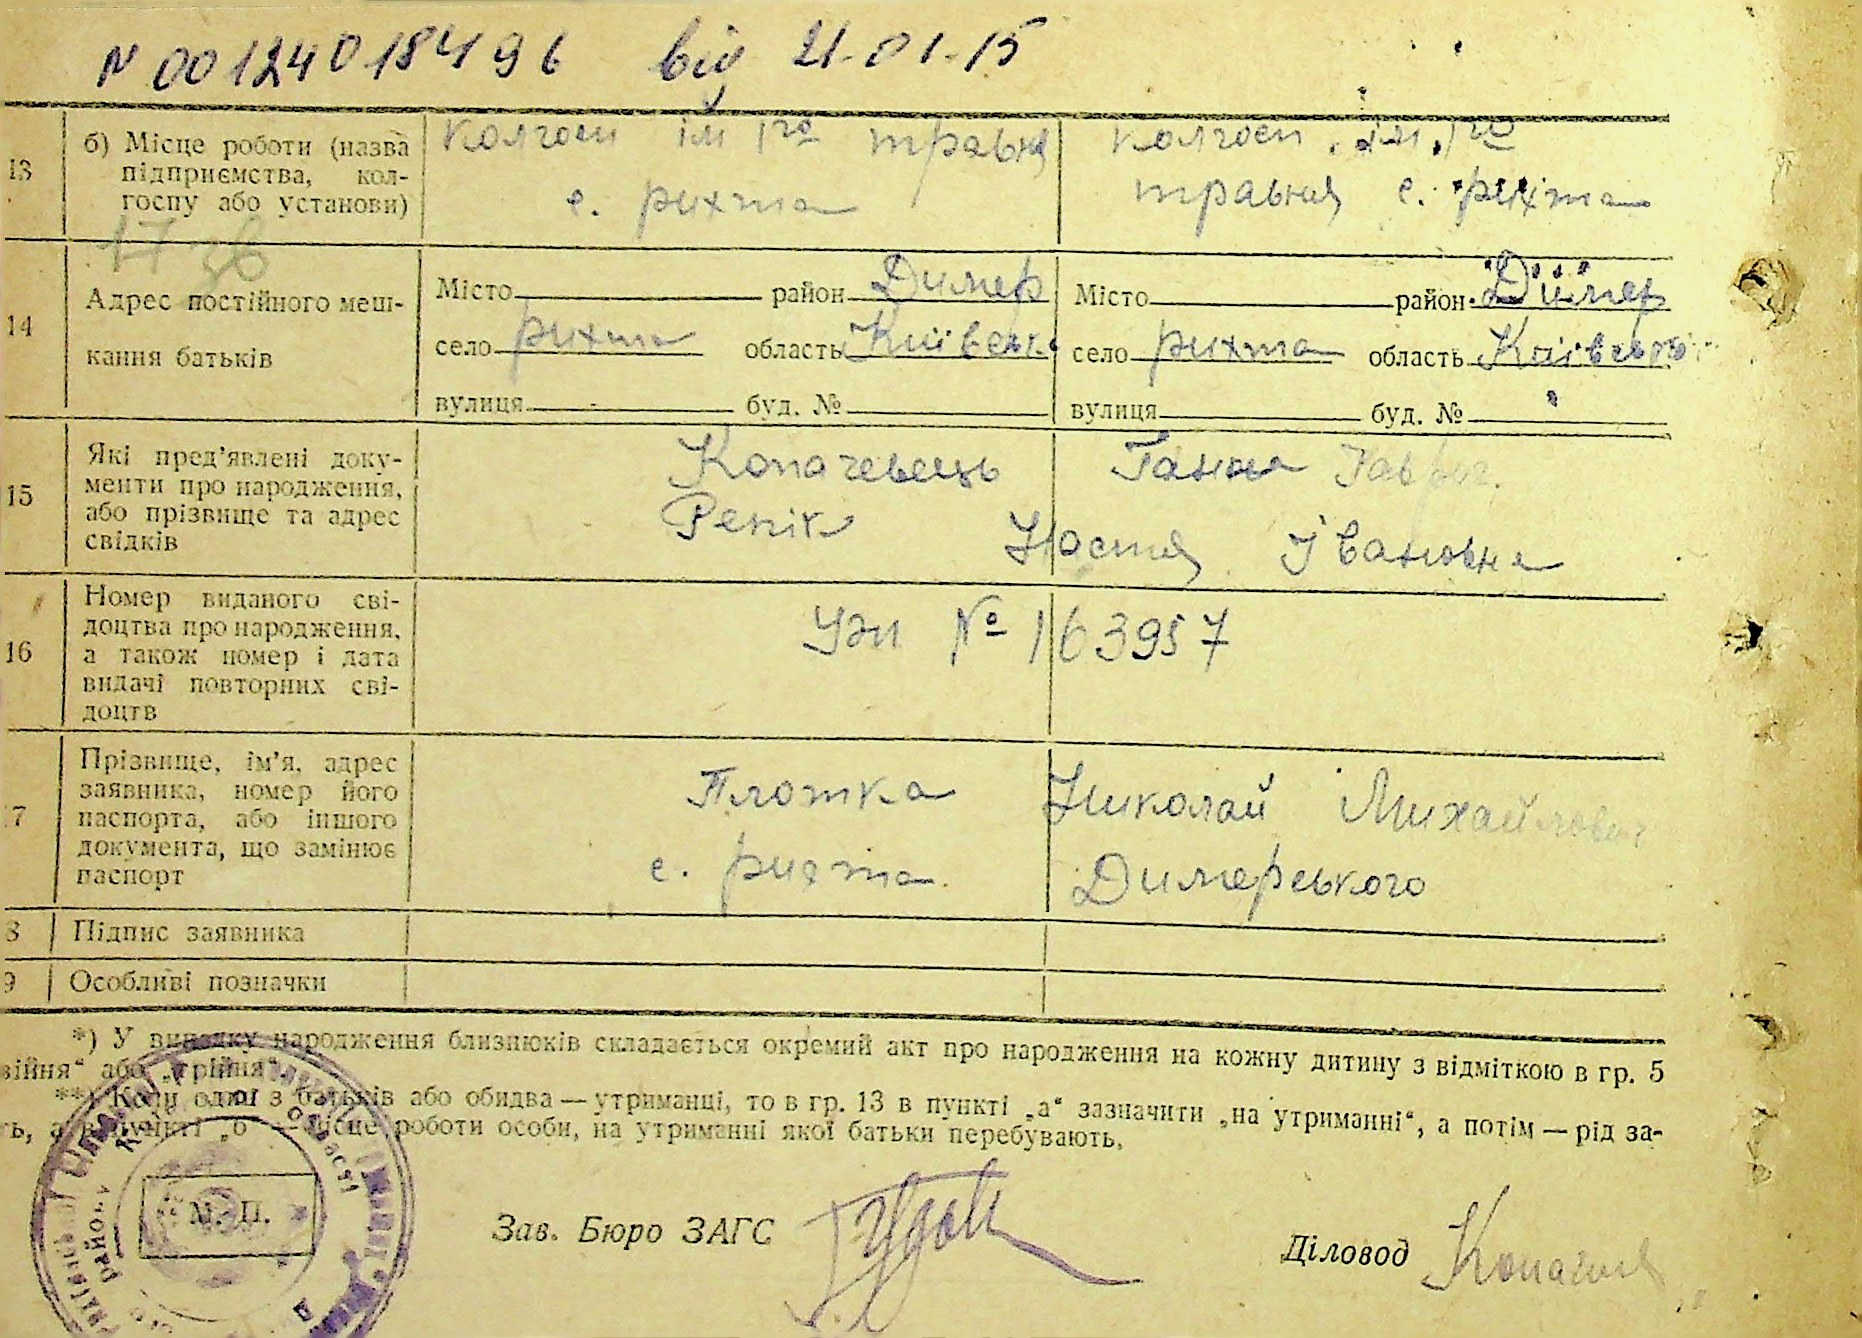 N 00124018496 від 21.01.15
13 б) Місце роботи (назва підприємства, колгоспу або установи)
Колгосп ім 1го травня
с. рихта
Колгосп ім. 1го
травня с. рихта
17 зв
14 Адрес постійного мешкання батьків
Місто район Димер
село рихта область Київськ.
вулиця буд. №
Місто район Димер
село рихта область Київсько
вулиця буд. №
15 Які пред'явлені доку-
менти про народження,
або прізвище та адрес
свідків
Копачевець Ганна
Репік Настя Івановна
16 Номер виданого сві-
доцтва про народження,
а також номер і дата
видачі повторних сві-
доцтв
№ 163957
7 Прізвище, ім'я, адрес
заявника, номер його
паспорта, або іншого
документа, що замінює
паспорт
Плотка Николай Михайлович
с. рихта Димерського
8 Підпис заявника
9 Особливі позначки
*) У випадку народження близнюків складається окремий акт про народження на кожну дитину з відміткою в гр. 5
війня“ або „трійня“.
**) Коли один з батьків або обидва — утриманці, то в гр. 13 в пункті „а“ зазначити „на утриманні“, а потім — рід за-
ть, а в пункті „б“ — місце роботи особи, на утриманні якої батьки перебувають.
М. П.
Зав. Бюро ЗАГС
Діловод